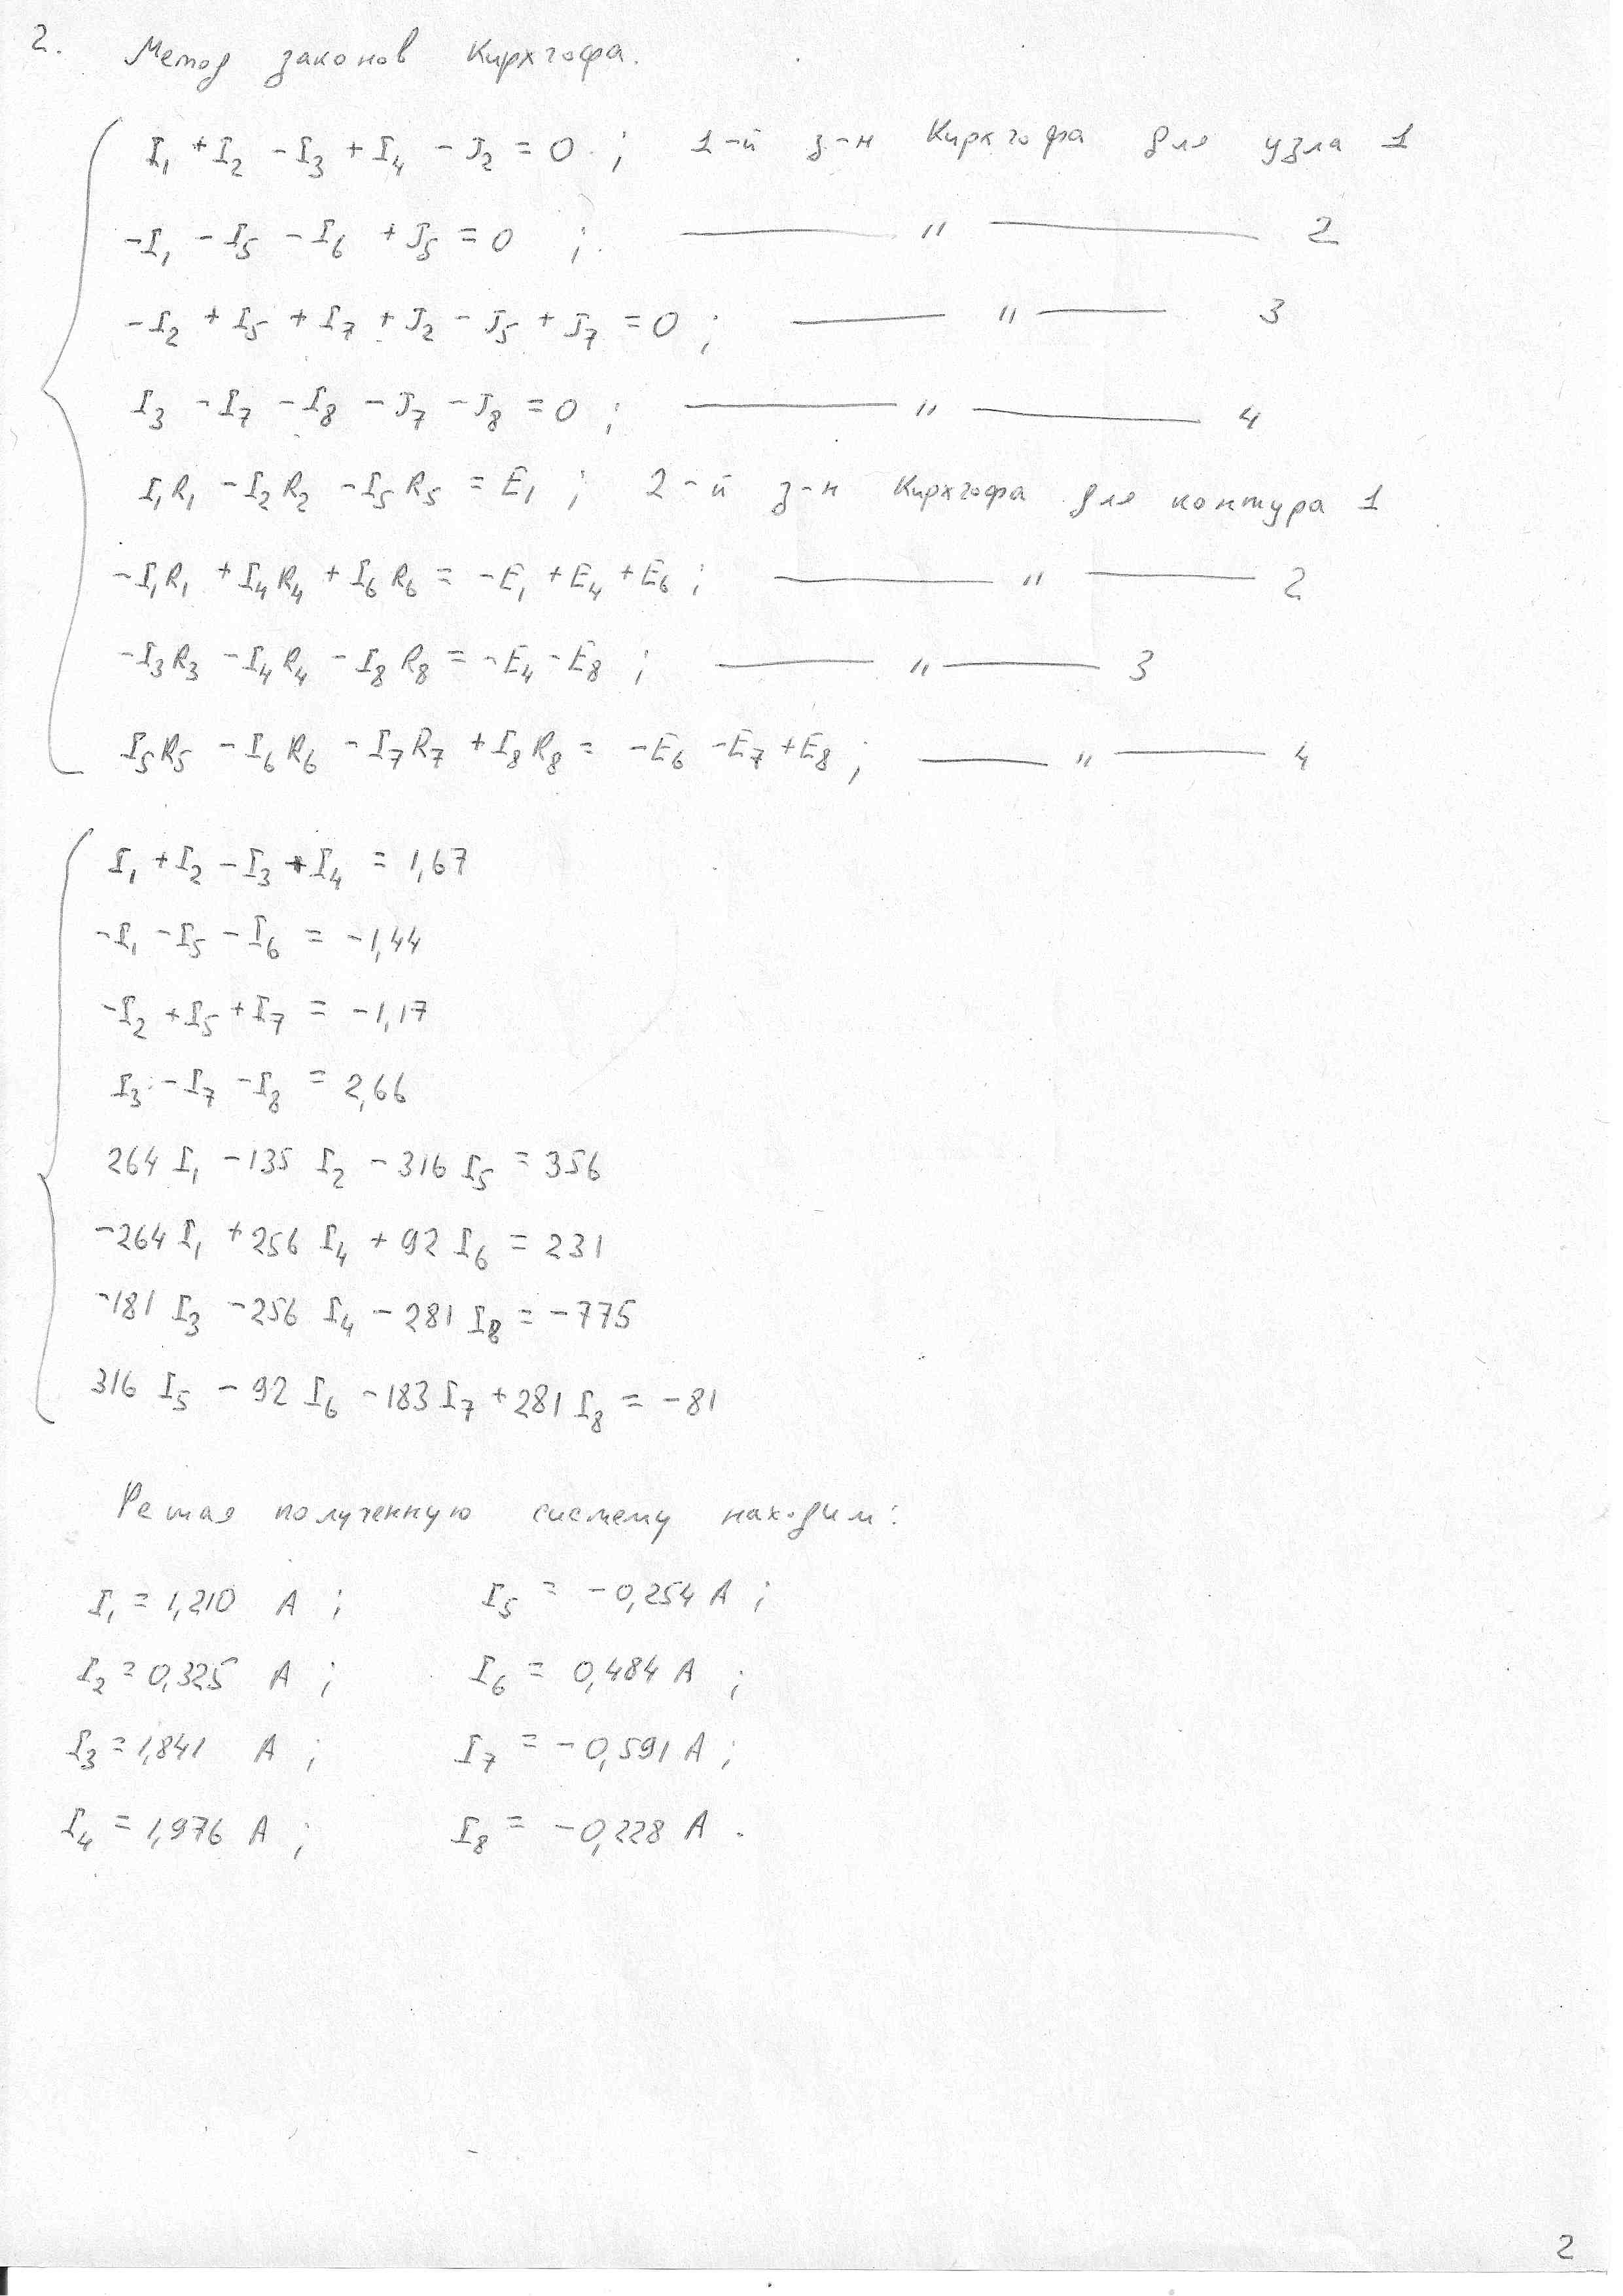 2. Метод законов Кирхгофа.
I₁ + I₂ - I₃ + I₄ - J₂ = 0 ; 1-й з-н Кирхгофа для узла 1
-I₁ - I₅ - I₆ + J₅ = 0 ; —— " —— 2
-I₂ + I₅ + I₇ + J₂ - J₅ + J₇ = 0 ; —— " —— 3
I₃ - I₇ - I₈ - J₇ - J₈ = 0 ; —— " —— 4
I₁R₁ - I₂R₂ - I₅R₅ = E₁ ; 2-й з-н Кирхгофа для контура 1
-I₁R₁ + I₄R₄ + I₆R₆ = -E₁ + E₄ + E₆ ; —— " —— 2
-I₃R₃ - I₄R₄ - I₈R₈ = -E₄ - E₈ ; —— " —— 3
I₅R₅ - I₆R₆ - I₇R₇ + I₈R₈ = -E₆ - E₇ + E₈ ; —— " —— 4
I₁ + I₂ - I₃ + I₄ = 1,67
-I₁ - I₅ - I₆ = -1,44
-I₂ + I₅ + I₇ = -1,17
I₃ - I₇ - I₈ = 2,66
264 I₁ - 135 I₂ - 316 I₅ = 356
-264 I₁ + 256 I₄ + 92 I₆ = 231
-181 I₃ - 256 I₄ - 281 I₈ = -775
316 I₅ - 92 I₆ - 183 I₇ + 281 I₈ = -81
Решая полученную систему находим:
I₁ = 1,210 A ; I₅ = -0,254 A ;
I₂ = 0,325 A ; I₆ = 0,484 A ;
I₃ = 1,841 A ; I₇ = -0,591 A ;
I₄ = 1,976 A ; I₈ = -0,228 A .
2